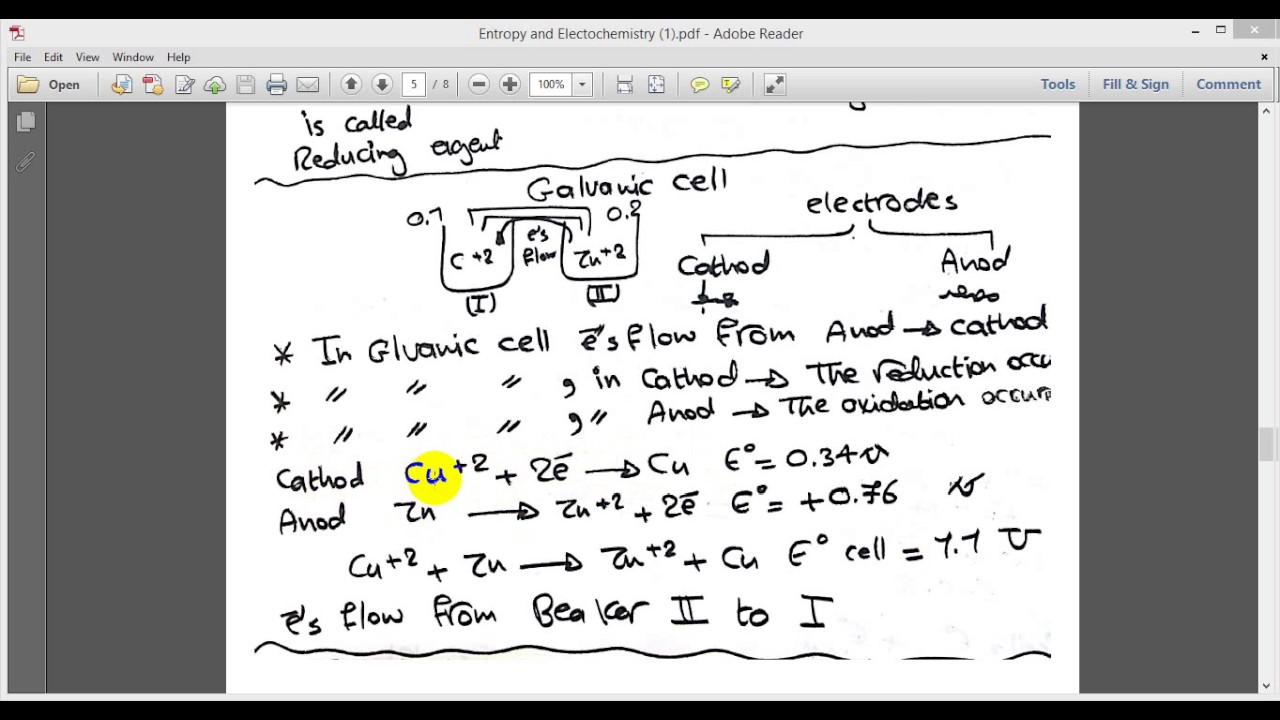 Entropy and Electochemistry (1).pdf - Adobe Reader
File Edit View Window Help
Open 5 / 8 100% Tools Fill & Sign Comment
is called
Reducing agent
Galvanic cell
electrodes
0.1 0.2
e's
flow
C +2 Zn+2
(I) (II)
Cathod Anod
* In Glvanic cell e's flow from Anod → cathod
* 〃 〃 〃 , in Cathod → The reduction occu
* 〃 〃 〃 , 〃 Anod → The oxidation occurs
Cathod Cu+2 + 2e → Cu E° = 0.34 v
Anod Zn → Zn+2 + 2e E° = +0.76 v
Cu+2 + Zn → Zn+2 + Cu E° cell = 1.1 V
e's flow from Beaker II to I